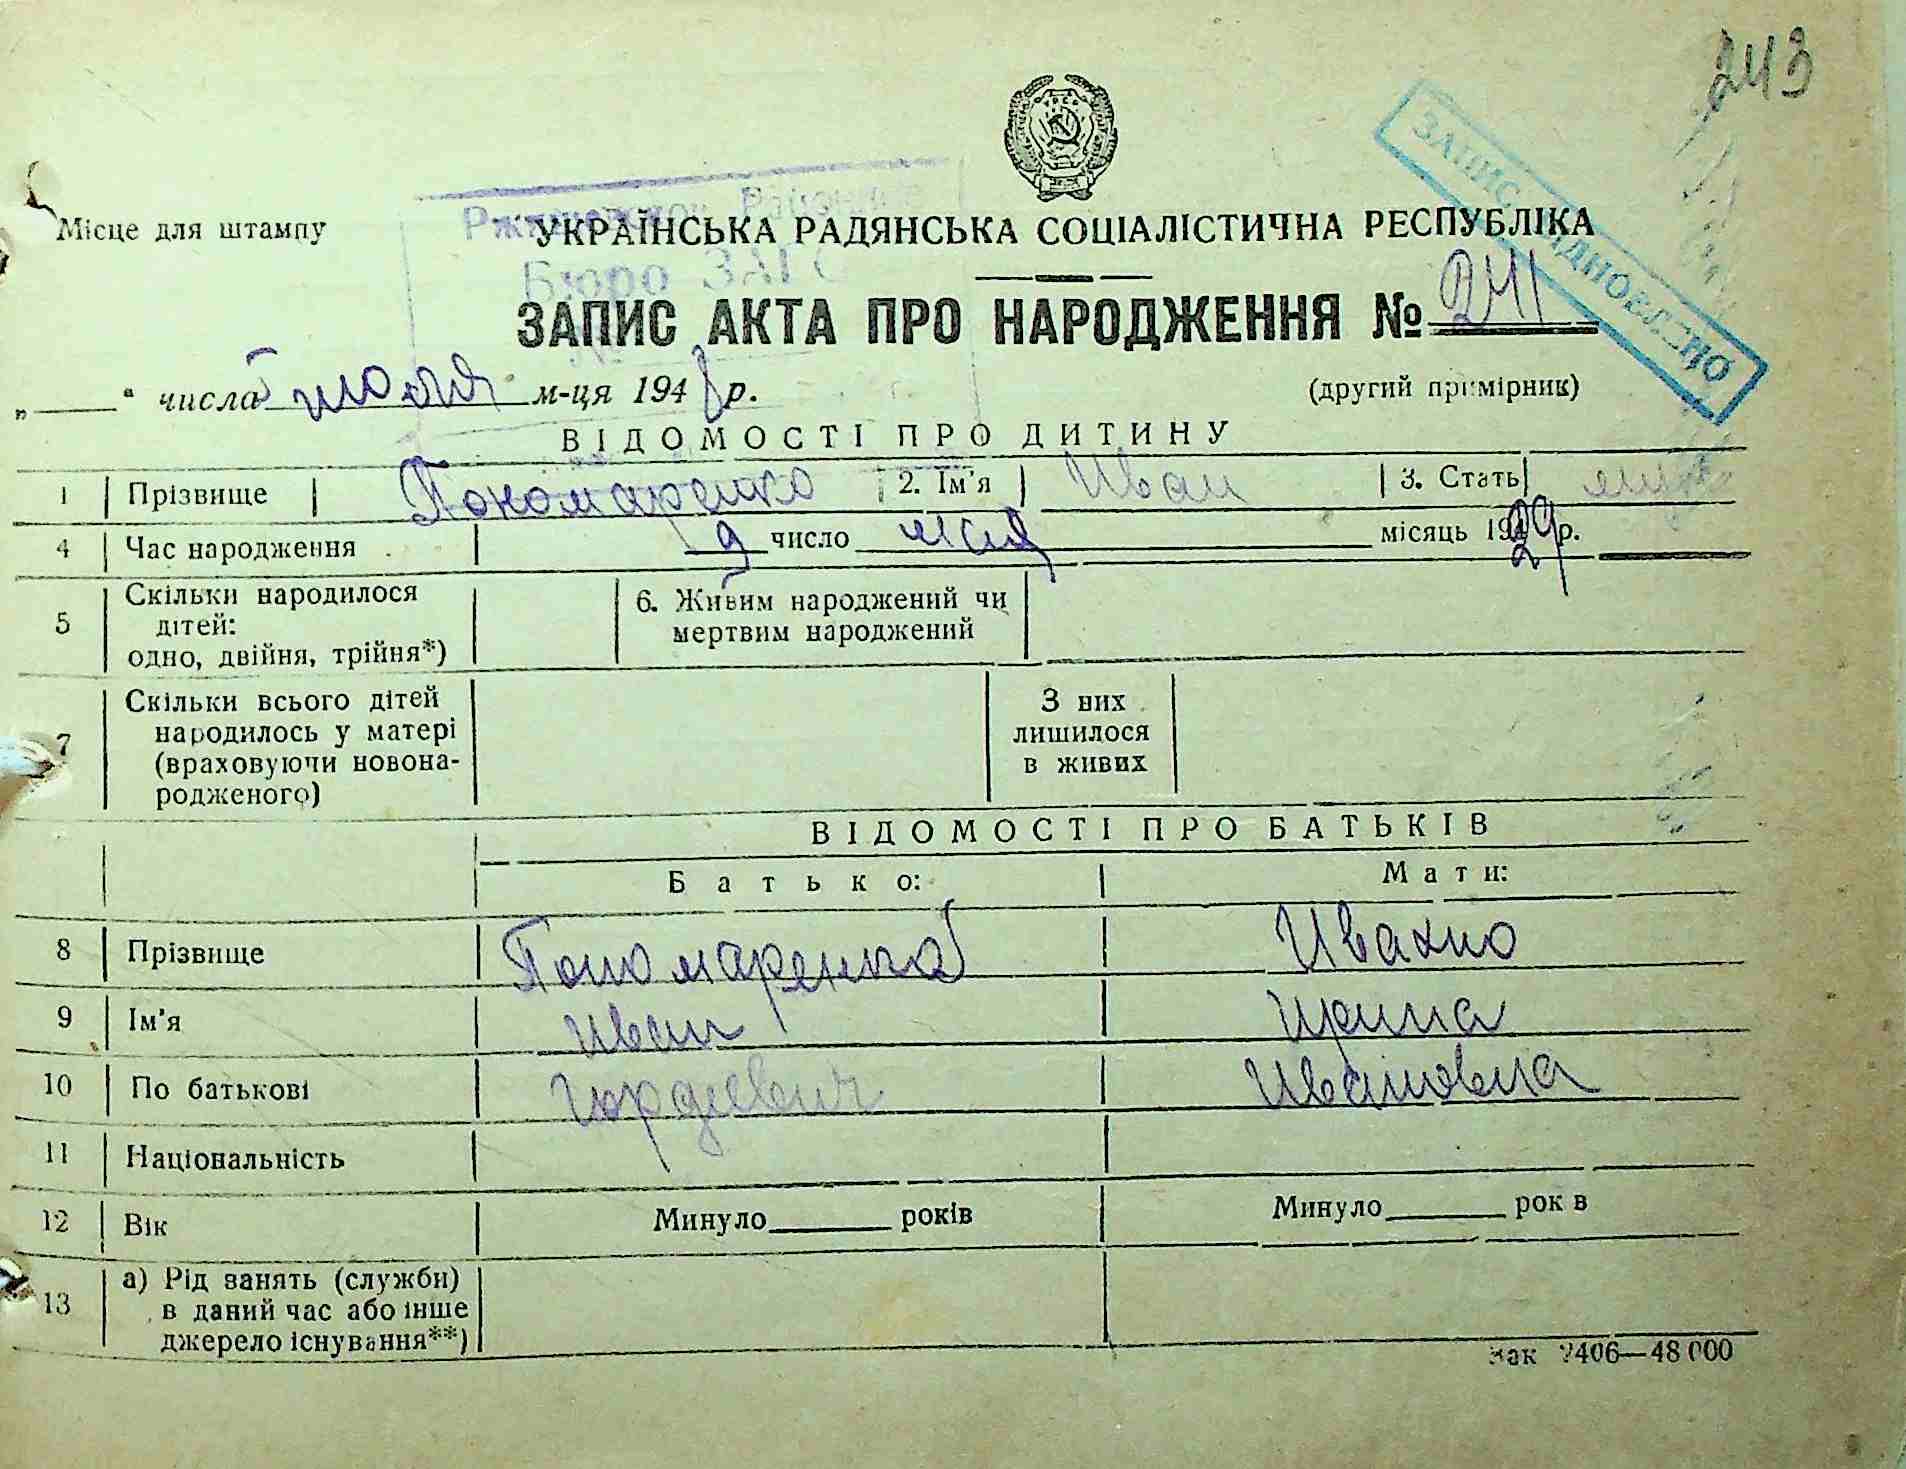 243
ЗАПИС ВІДНОВЛЕНО
Місце для штампу
Бюро ЗАГС
УКРАЇНСЬКА РАДЯНСЬКА СОЦІАЛІСТИЧНА РЕСПУБЛІКА
ЗАПИС АКТА ПРО НАРОДЖЕННЯ № 241
„ “ числа июля м-ця 1948 р. (другий примірник)
ВІДОМОСТІ ПРО ДИТИНУ
1 Прізвище Пономаренко 2. Ім'я Иван 3. Стать
4 Час народження 9 число мая місяць 1929 р.
5 Скільки народилося дітей: одно, двійня, трійня*) 6. Живим народжений чи мертвим народжений
7 Скільки всього дітей народилось у матері (враховуючи новонародженого) З них лишилося в живих
ВІДОМОСТІ ПРО БАТЬКІВ
Батько: Мати:
8 Прізвище Пономаренко Ивахно
9 Ім'я Иван Ирина
10 По батькові Гордеевич Ивановна
11 Національність
12 Вік Минуло років Минуло рок в
13 а) Рід занять (служби) в даний час або інше джерело існування**)
Зак 2406—48 000